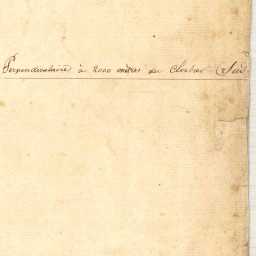 Perpendiculaire à 2000 mètres du Clocher (Sud